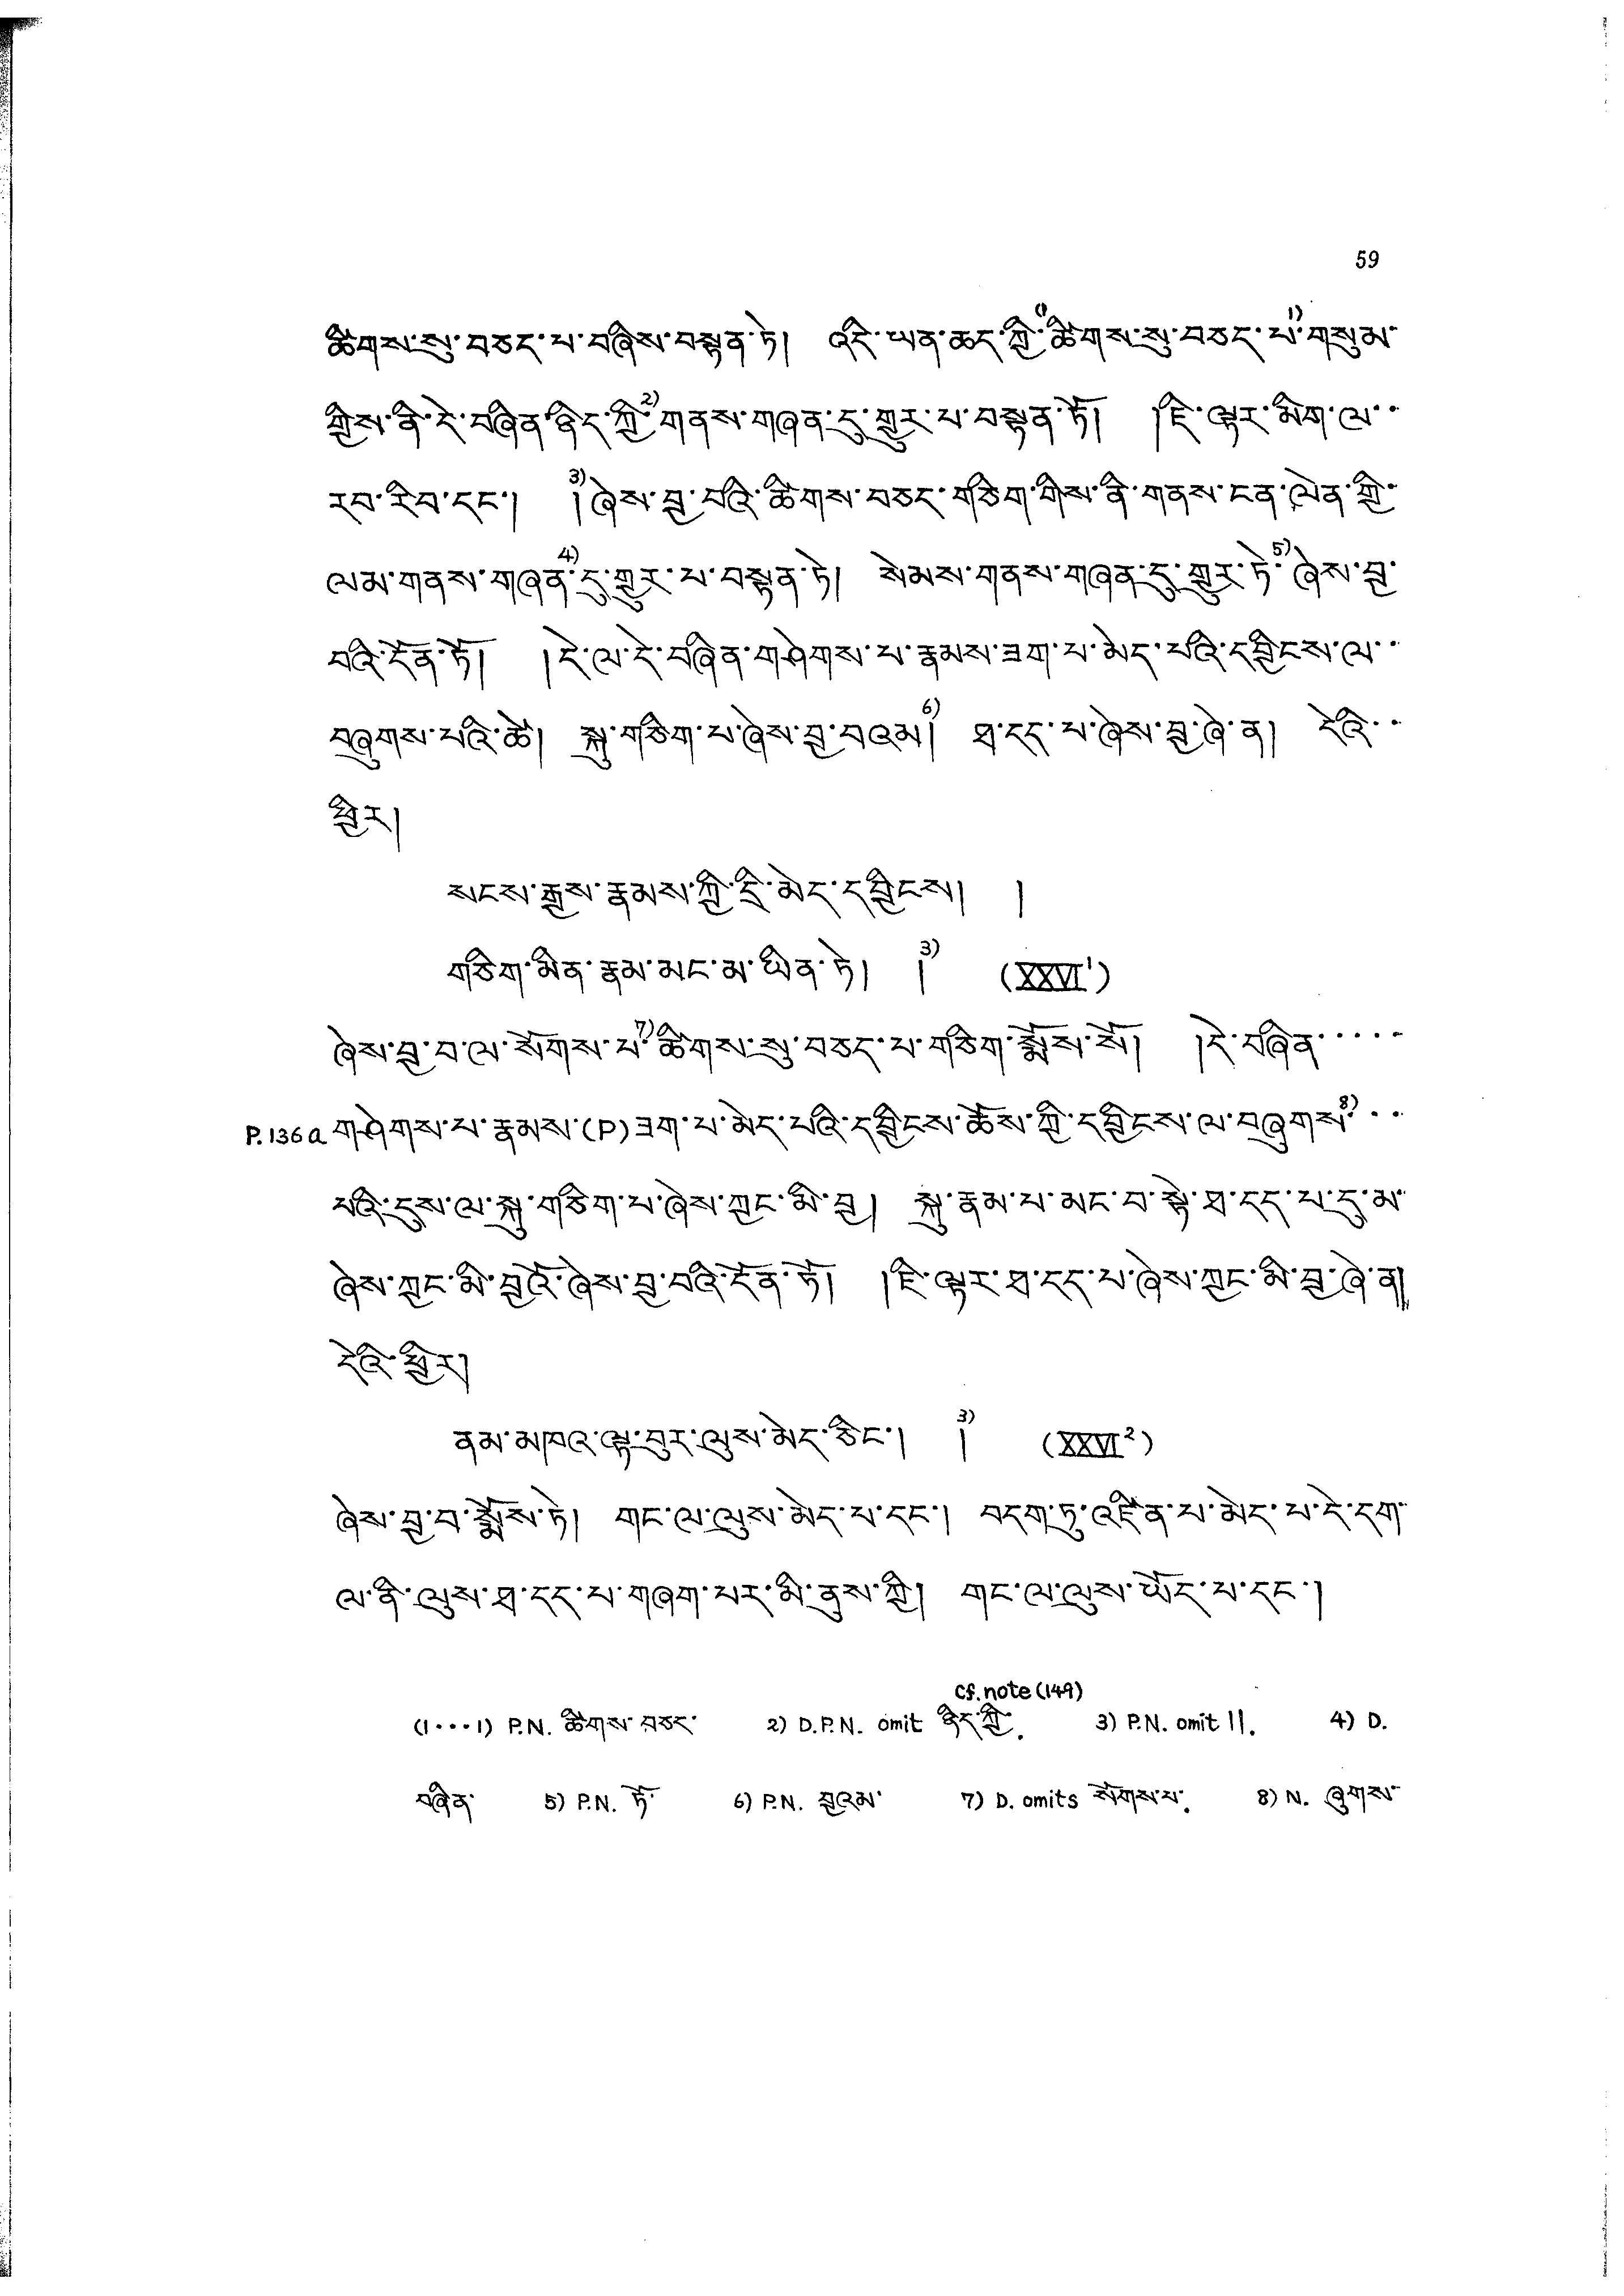 59
ཚིགས་སུ་བཅད་པ་བཞིས་བསྟན་ཏེ། འདི་ཡན་ཆད་ཀྱི་(1ཚིགས་སུ་བཅད་པ་1)གསུམ་
གྱིས་ནི་དེ་བཞིན་ཉིད་ཀྱི་2)གནས་གཞན་དུ་གྱུར་པ་བསྟན་ཏོ། །ཇི་ལྟར་མིག་ལ་··
རབ་རིབ་དང་། །3)ཞེས་བྱ་བའི་ཚིགས་བཅད་གཅིག་གིས་ནི་གནས་ངན་ལེན་གྱི་
ལམ་གནས་གཞན་4)དུ་གྱུར་པ་བསྟན་ཏེ། སེམས་གནས་གཞན་དུ་གྱུར་ཏེ་5)ཞེས་བྱ་
བའི་དོན་ཏོ། །དེ་ལ་དེ་བཞིན་གཤེགས་པ་རྣམས་ཟག་པ་མེད་པའི་དབྱིངས་ལ་··
བཞུགས་པའི་ཚེ། སྐུ་གཅིག་པ་ཞེས་བྱ་བའམ།6) ཐ་དད་པ་ཞེས་བྱ་ཞེ་ན། དེའི་··
ཕྱིར།
སངས་རྒྱས་རྣམས་ཀྱི་དྲི་མེད་དབྱིངས། །
གཅིག་མིན་རྣམ་མང་མ་ཡིན་ཏེ། །3) (XXVI¹)
ཞེས་བྱ་བ་ལ་སོགས་པ་7)ཚིགས་སུ་བཅད་པ་གཅིག་སྨོས་སོ། །དེ་བཞིན་·····
P.136a གཤེགས་པ་རྣམས་(P)ཟག་པ་མེད་པའི་དབྱིངས་ཆོས་ཀྱི་དབྱིངས་ལ་བཞུགས་8)··
པའི་དུས་ལ་སྐུ་གཅིག་པ་ཞེས་ཀྱང་མི་བྱ། སྐུ་རྣམ་པ་མང་བ་སྟེ་ཐ་དད་པ་དུ་མ་
ཞེས་ཀྱང་མི་བྱའོ་ཞེས་བྱ་བའི་དོན་ཏོ། །ཇི་ལྟར་ཐ་དད་པ་ཞེས་ཀྱང་མི་བྱ་ཞེ་ན།
དེའི་ཕྱིར།
ནམ་མཁའ་ལྟ་བུར་ལུས་མེད་ཅིང་། །3) (XXVI²)
ཞེས་བྱ་བ་སྨོས་ཏེ། གང་ལ་ལུས་མེད་པ་དང་། བདག་ཏུ་འཛིན་པ་མེད་པ་དེ་དག་
ལ་ནི་ལུས་ཐ་དད་པ་གཞག་པར་མི་ནུས་ཀྱི། གང་ལ་ལུས་ཡོད་པ་དང་།
cf. note (149)
(1····1) P.N. ཚིགས་བཅད་ 2) D.P.N. omit ཉིད་ཀྱི་. 3) P.N. omit ||. 4) D.
བཞིན་ 5) P.N. ཏོ་ 6) P.N. བྱའམ་ 7) D. omits སོགས་པ་. 8) N. ཞུགས་